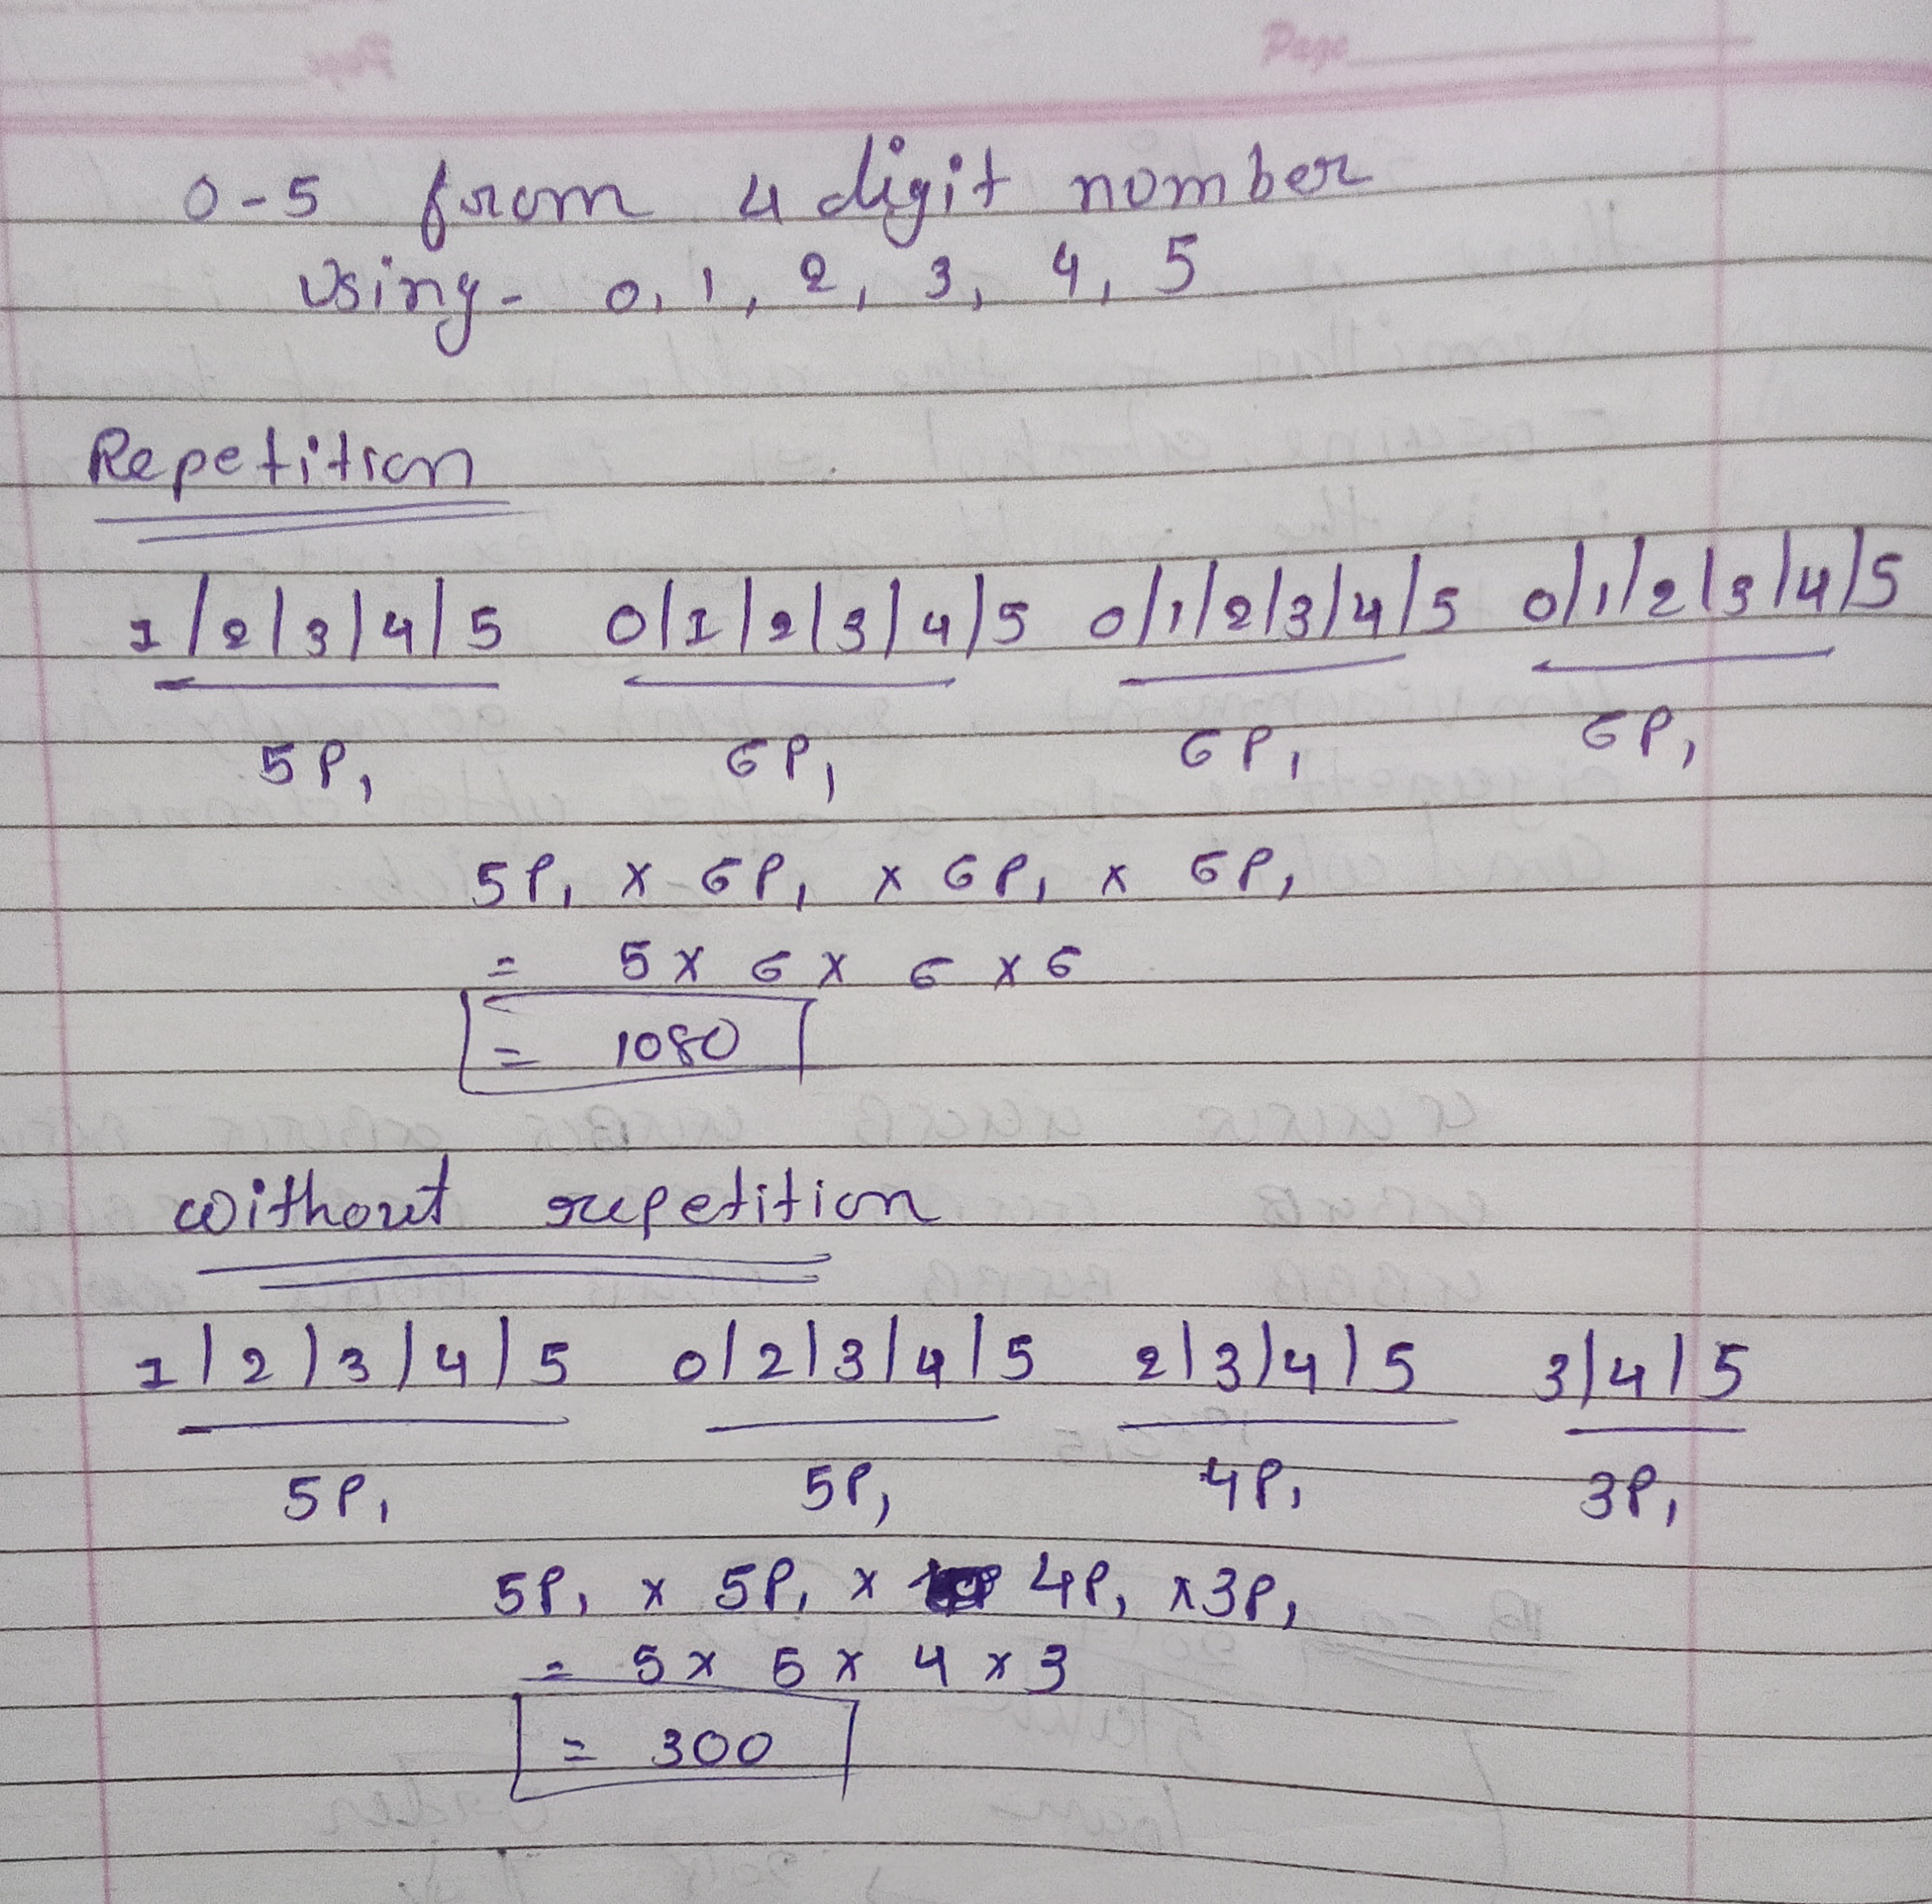 Page
0-5 from 4 digit number
Using- 0, 1, 2, 3, 4, 5
Repetition
1/2/3/4/5 0/1/2/3/4/5 0/1/2/3/4/5 0/1/2/3/4/5
5P₁ 6P₁ 6P₁ 6P₁
5P₁ x 6P₁ x 6P₁ x 6P₁
= 5 x 6 x 6 x 6
= 1080
without repetition
1/2/3/4/5 0/2/3/4/5 2/3/4/5 3/4/5
5P₁ 5P₁ 4P₁ 3P₁
5P₁ x 5P₁ x 4P₁ x 3P₁
= 5 x 5 x 4 x 3
= 300